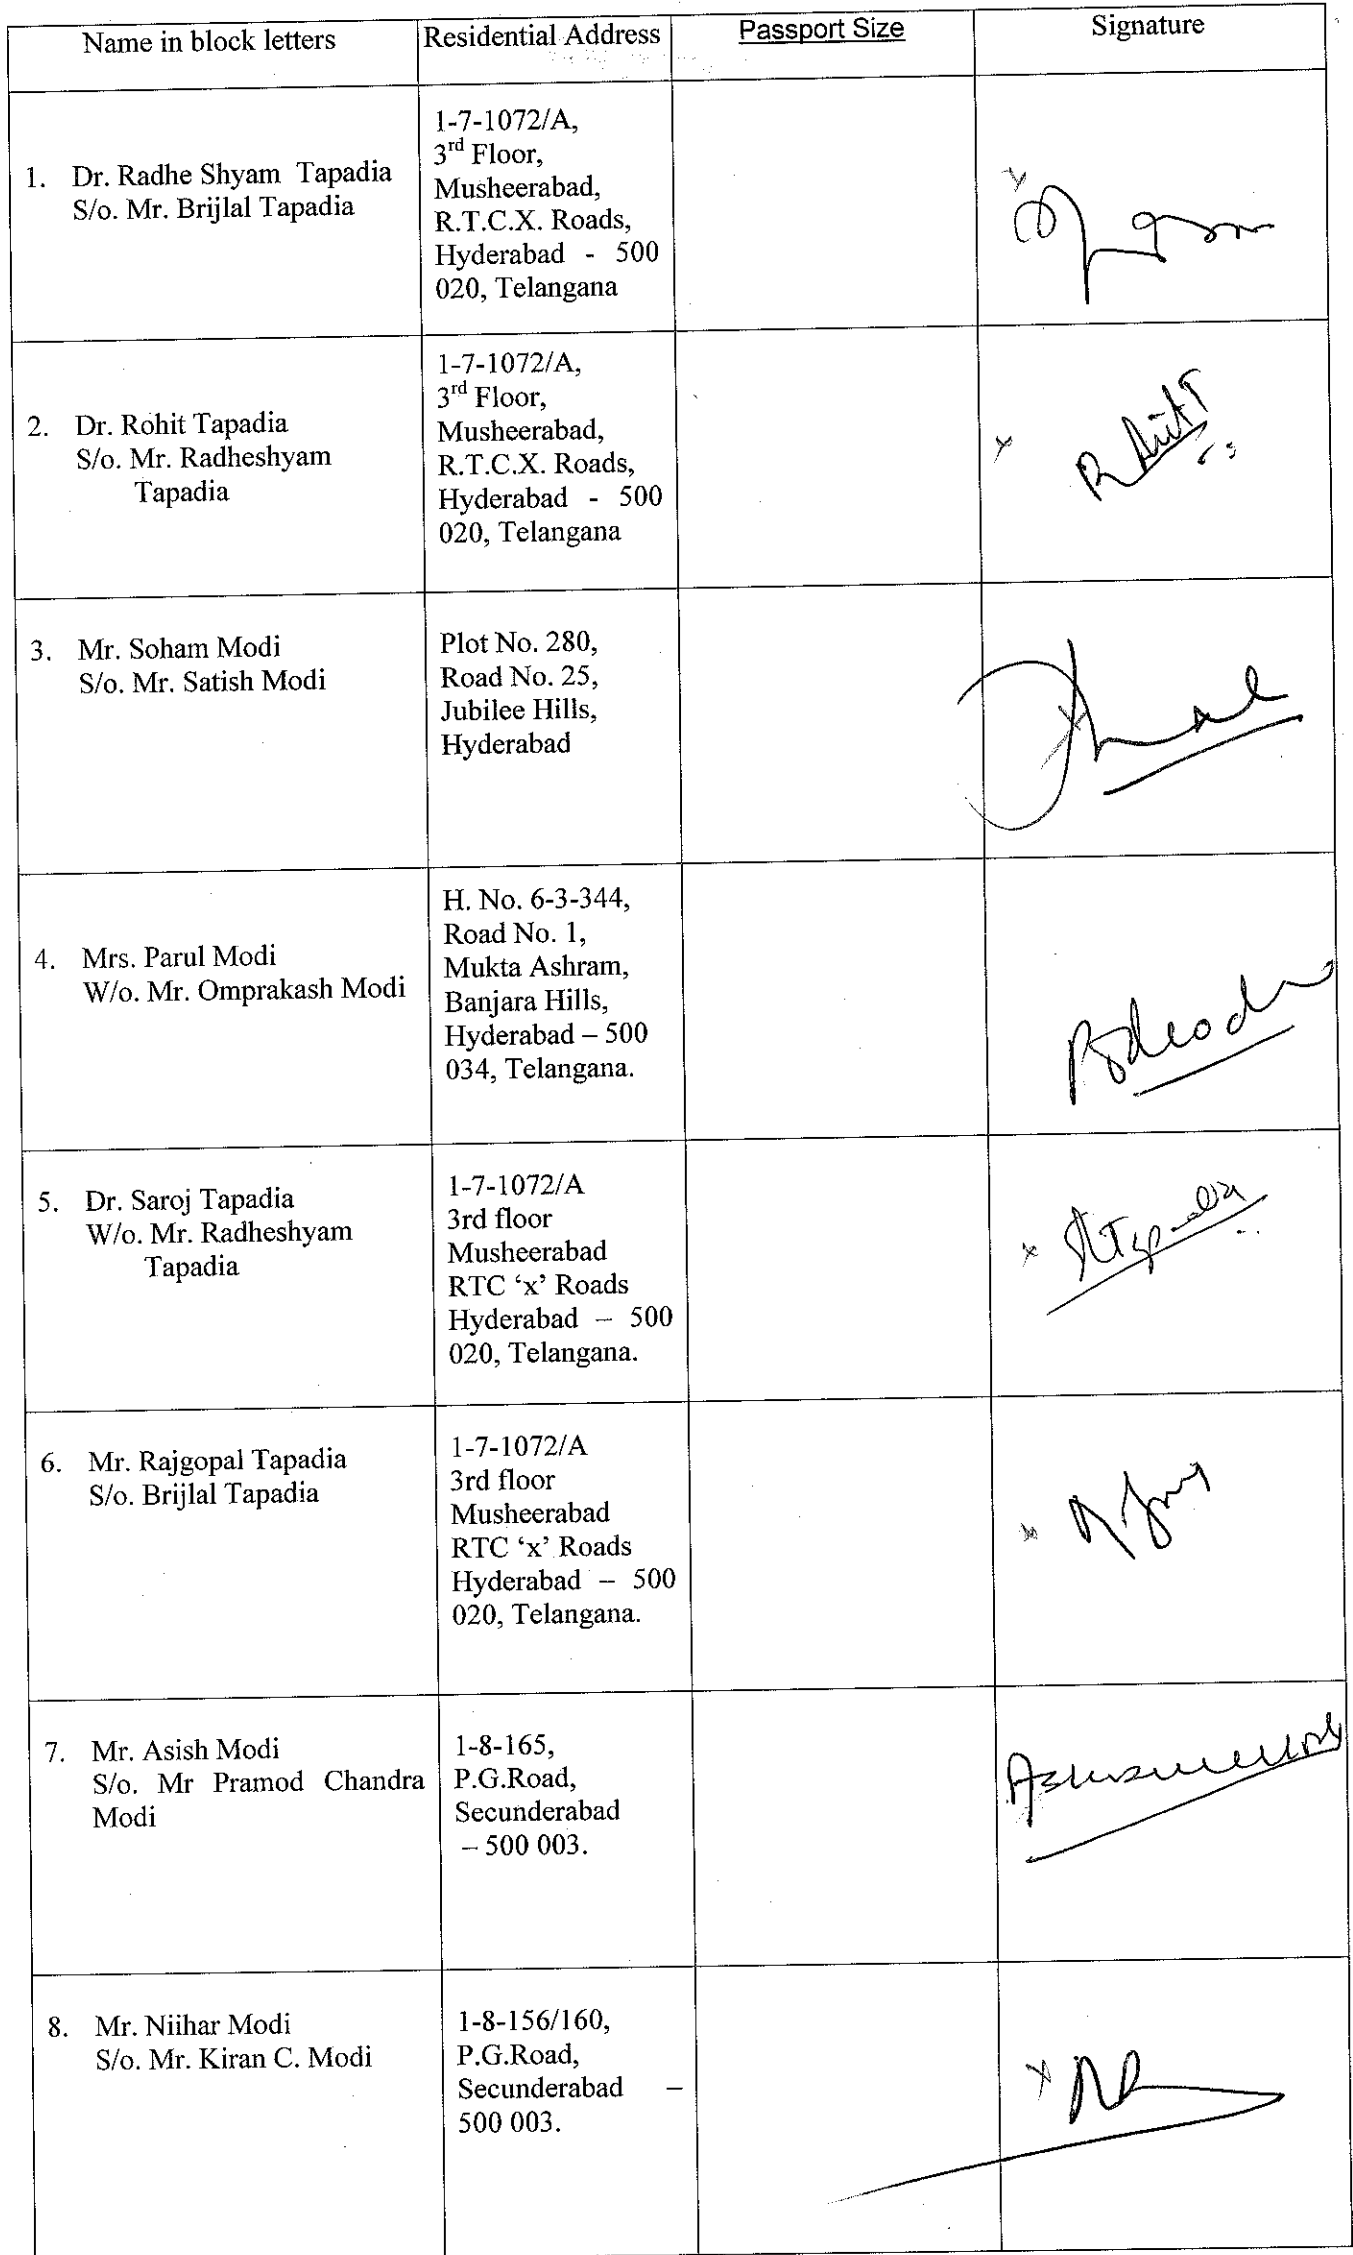 Name in block letters
Residential Address
Passport Size
Signature
1. Dr. Radhe Shyam Tapadia
S/o. Mr. Brijlal Tapadia
1-7-1072/A,
3rd Floor,
Musheerabad,
R.T.C.X. Roads,
Hyderabad - 500
020, Telangana
2. Dr. Rohit Tapadia
S/o. Mr. Radheshyam
Tapadia
1-7-1072/A,
3rd Floor,
Musheerabad,
R.T.C.X. Roads,
Hyderabad - 500
020, Telangana
3. Mr. Soham Modi
S/o. Mr. Satish Modi
Plot No. 280,
Road No. 25,
Jubilee Hills,
Hyderabad
4. Mrs. Parul Modi
W/o. Mr. Omprakash Modi
H. No. 6-3-344,
Road No. 1,
Mukta Ashram,
Banjara Hills,
Hyderabad – 500
034, Telangana.
5. Dr. Saroj Tapadia
W/o. Mr. Radheshyam
Tapadia
1-7-1072/A
3rd floor
Musheerabad
RTC ‘x’ Roads
Hyderabad – 500
020, Telangana.
6. Mr. Rajgopal Tapadia
S/o. Brijlal Tapadia
1-7-1072/A
3rd floor
Musheerabad
RTC ‘x’ Roads
Hyderabad – 500
020, Telangana.
7. Mr. Asish Modi
S/o. Mr Pramod Chandra
Modi
1-8-165,
P.G.Road,
Secunderabad
– 500 003.
8. Mr. Niihar Modi
S/o. Mr. Kiran C. Modi
1-8-156/160,
P.G.Road,
Secunderabad –
500 003.